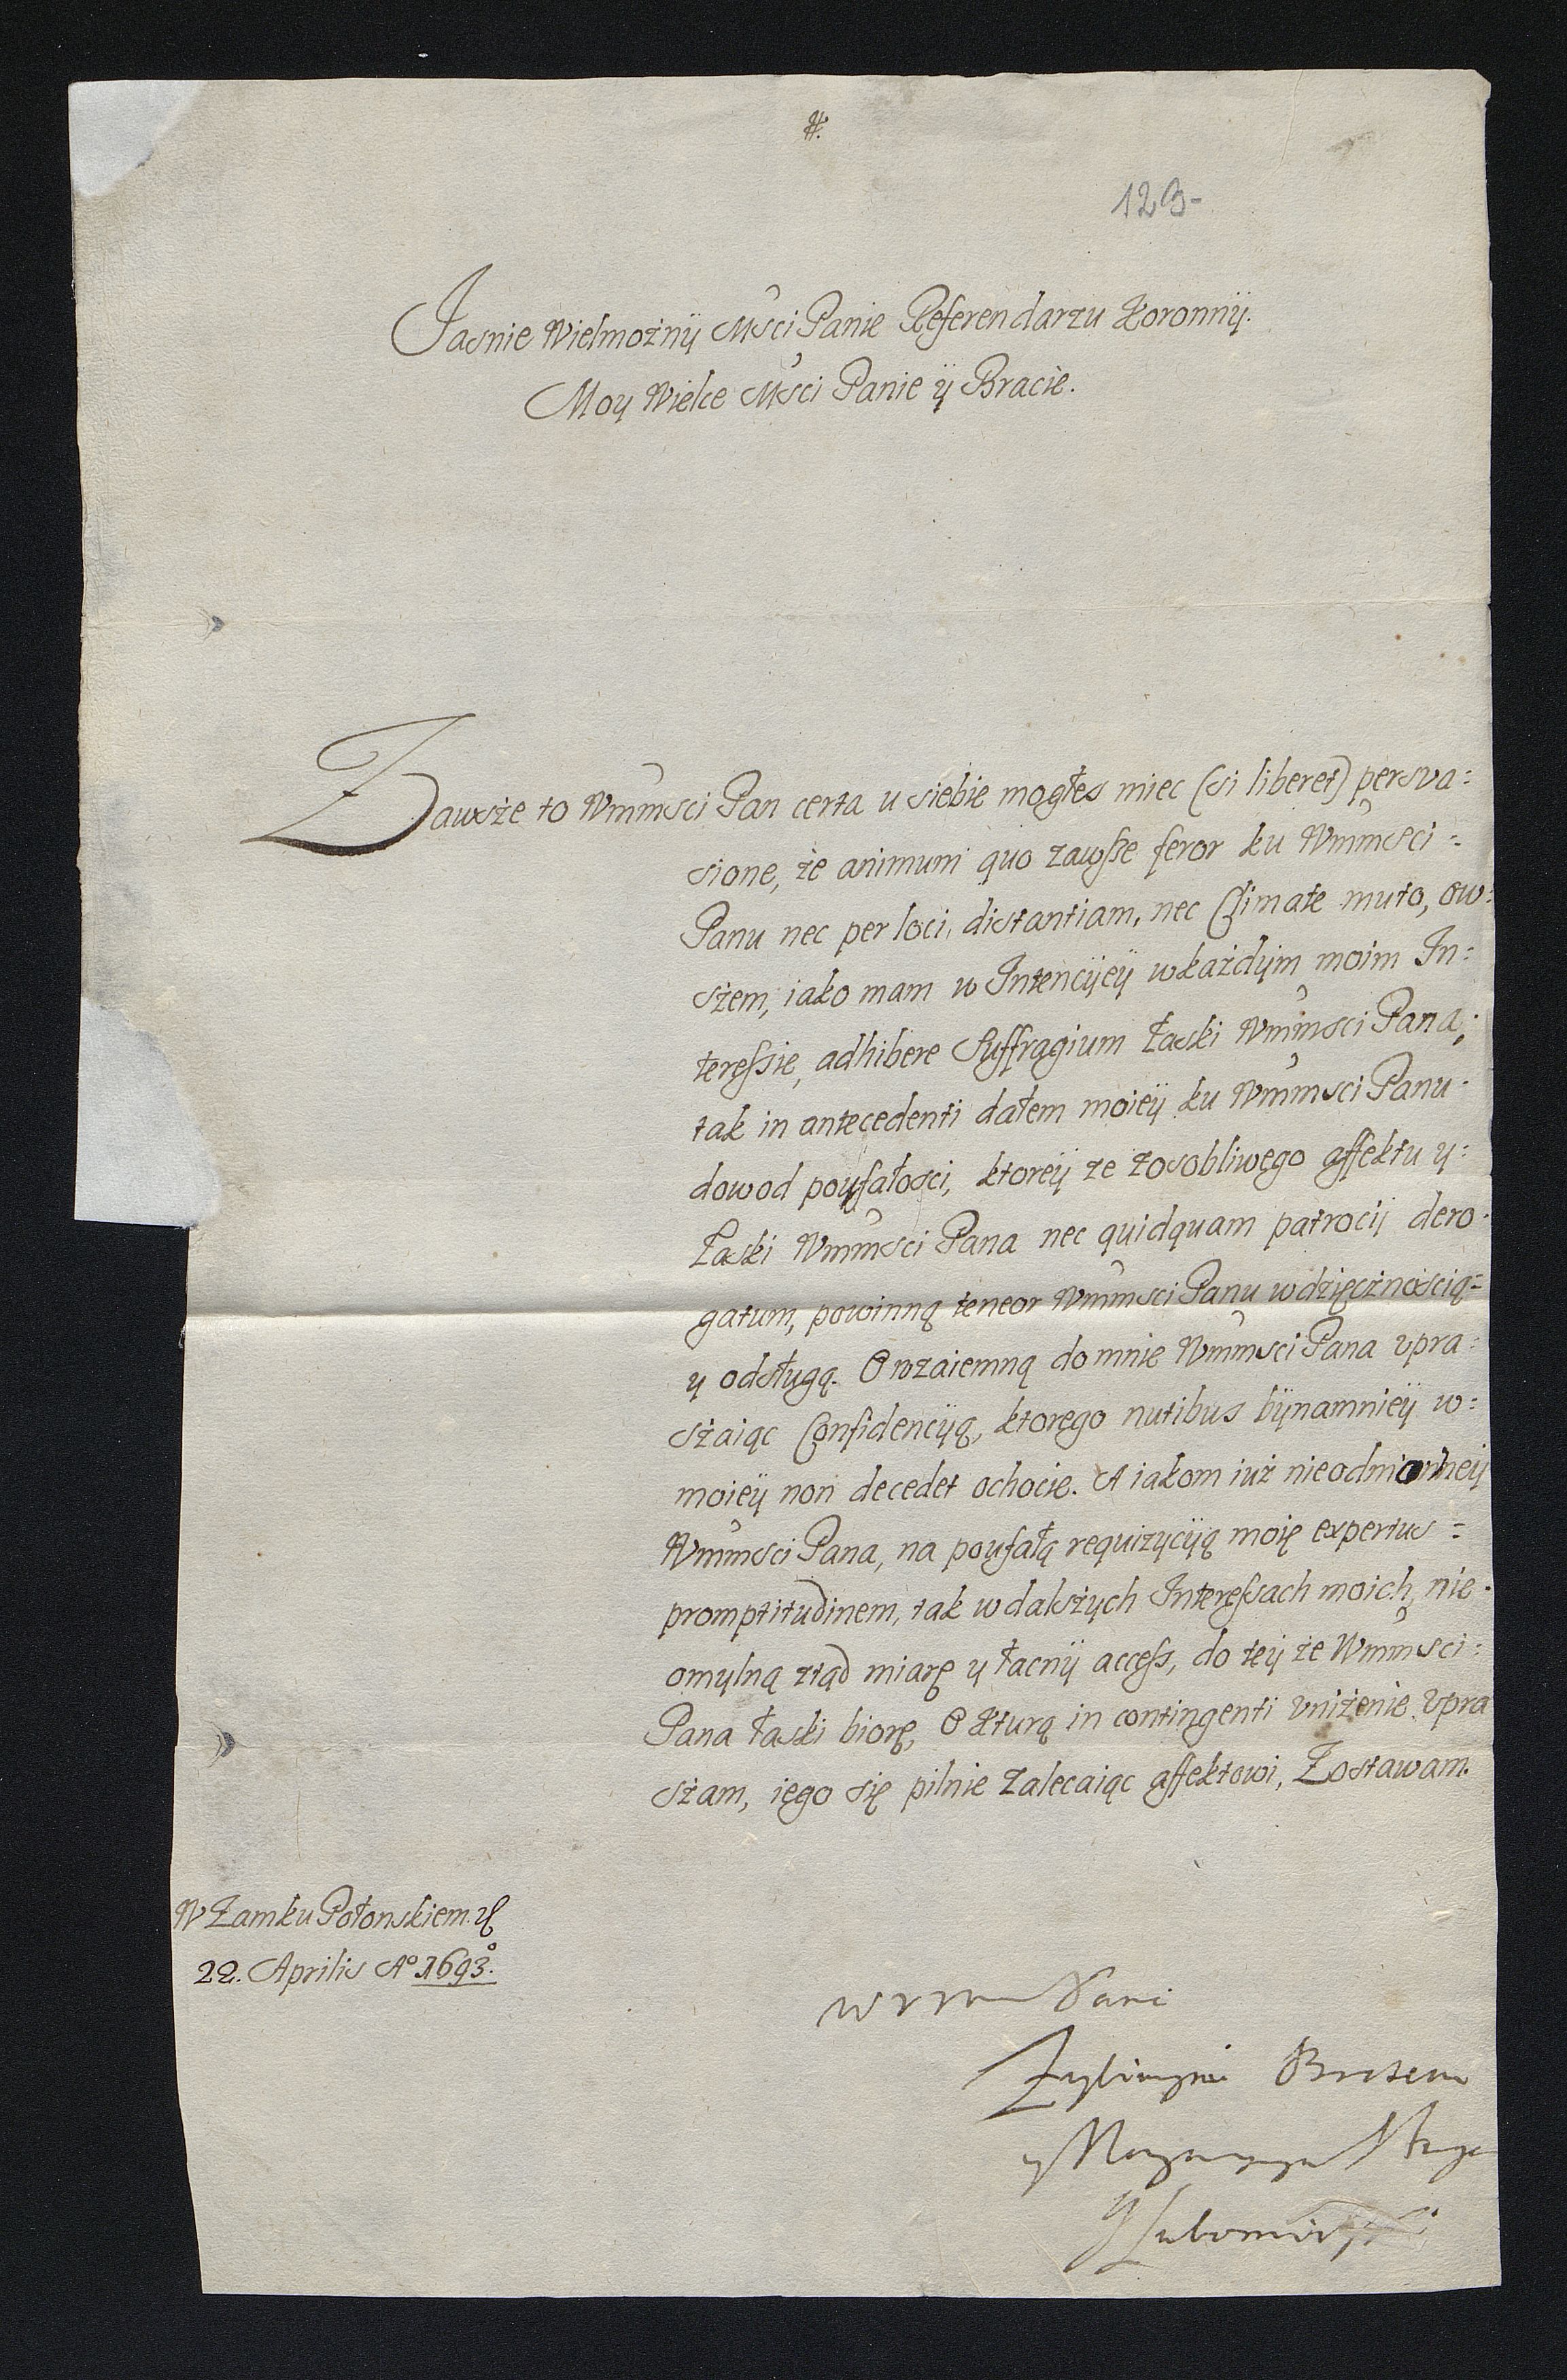 #.
129-
Jasnie Wielmożnÿ Msci Panie Referendarzu Koronnÿ.
Moy Wielce Msci Panie ÿ Bracie.
Zawsże to Wmmsci Pan certa u siebie mogłes miec (si liberet) persva=
sione, że animum quo zawsze feror ku Wmmsci=
Panu nec per loci distantiam, nec Climate muto, ow=
szem, iako mam w Intencÿeÿ wkażdÿm moim In=
teressie, adhibere Suffragium łaski Wmmsci Pana,
tak in antecedenti dałem moieÿ ku Wmmsci Panu
dowod poufałosci, ktoreÿ ze zosobliwego affektu y=
Łaski Wmmsci Pana nec quidquam patrocij dero
gatum, powinną teneor Wmmsci Panu wdzięcznoscią=
y odsługą. O wzaiemną do mnie Wmmsci Pana vpra=
szaiąc Confidencÿą, ktorego nutibus bÿnamnieÿ w=
moieÿ non decedet ochocie. A iakom iuż nieodmienneÿ
Wmmsci Pana, na poufałą requizycÿą moię expertus=
promptitudinem, tak wdalszych Interessach moich, nie
omylną ztąd miarę y łacnÿ access, do teÿ że Wmmsci=
Pana łaski biorę, O kturą in contingenti vniżenie vpra
szam, iego się pilnie zalecaiąc affektowi, Zostawam.
W Zamku Połonskiem
22. Aprilis A° 1693°.
Pana
Zyczliwym Bratem
y Sługą
Lubomirski